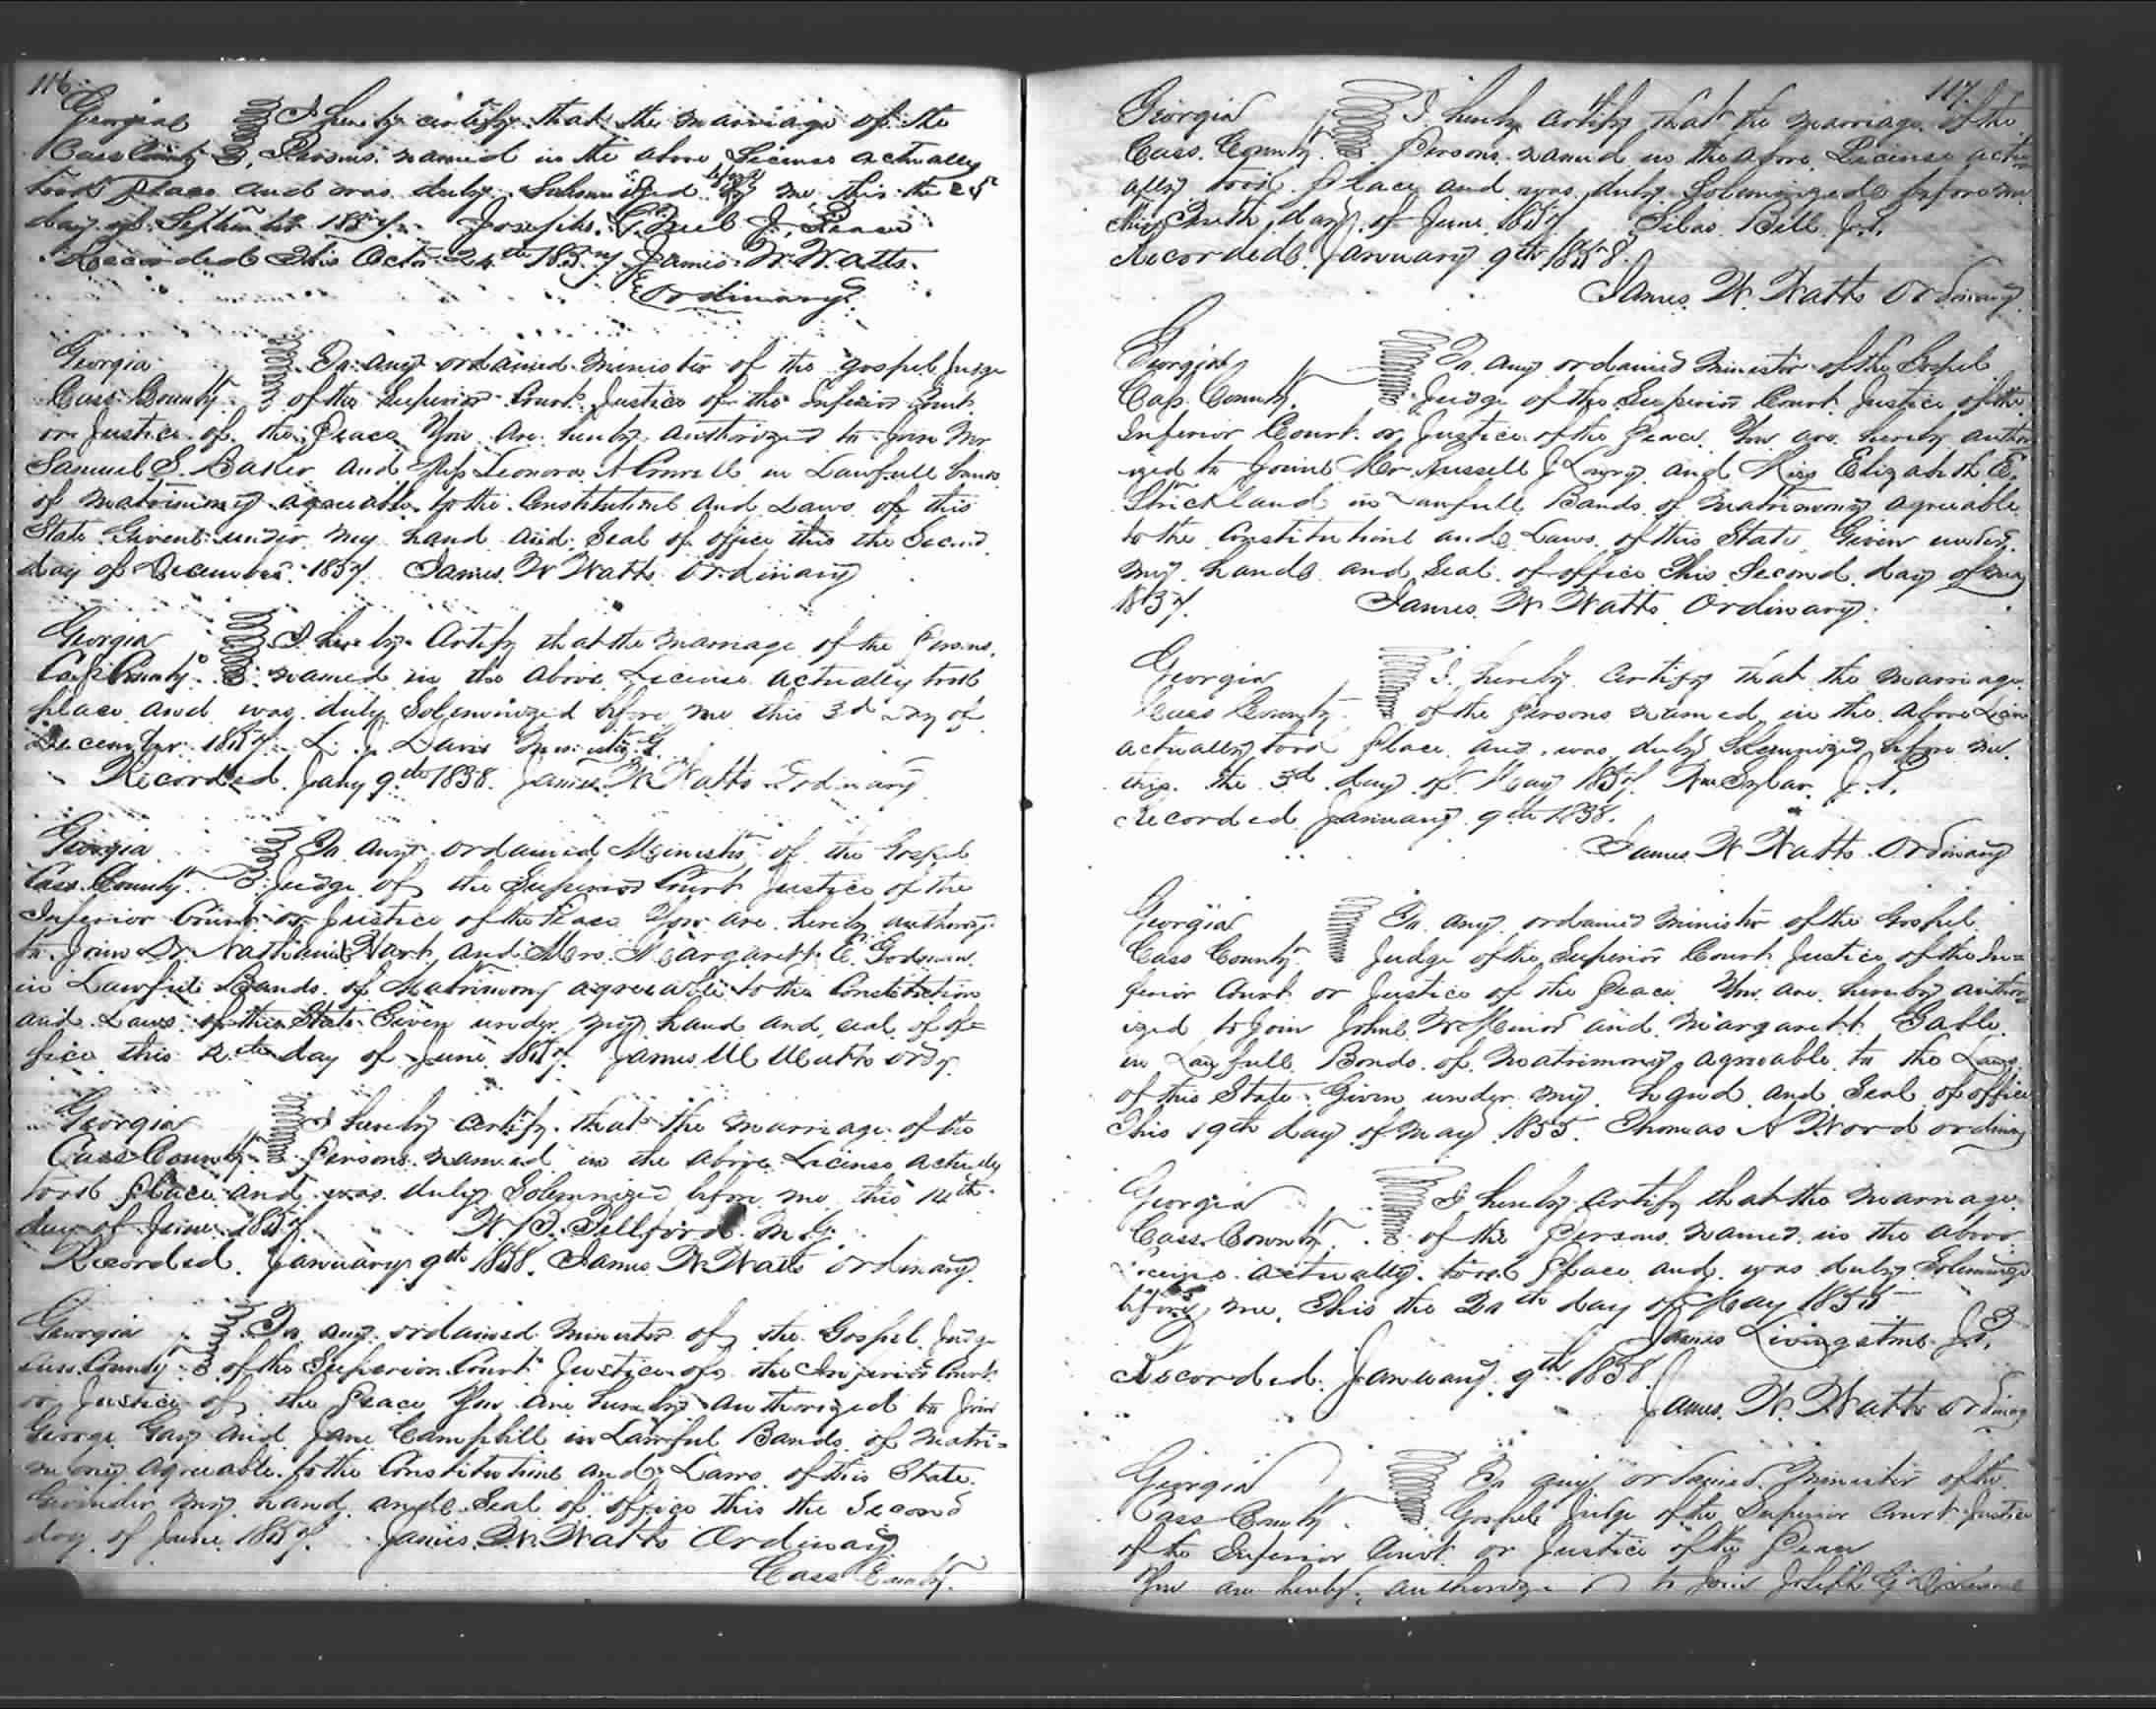 116
Georgia I hereby certify that the marriage of the
Cass County Persons named in the above License actually
took place and was duly Solemnized before me this the 25th
day of September 1857. Joseph G. Peace
Recorded this Octr. 24th 1857 James W. Watts
Ordinary
Georgia To any ordained minister of the gospel Judge
Cass County of the Superior Court Justice of the Inferior Court
or Justice of the Peace You are hereby authorized to Join Mr
Samuel S. Baker and Miss Leonora A in Lawfull bands
of matrimony agreeable to the Constitution and Laws of this
State Given under my hand and Seal of office this the Second
day of December 1857 James W Watts Ordinary
Georgia I hereby Certify that the marriage of the Persons
Cass County named in the above License actually took
place and was duly Solemnized before me this 3d day of
December 1857 L. J. Davis
Recorded Jany 9th 1858. James W Watts Ordinary
Georgia To any ordained Minister of the Gospel
Cass County Judge of the Superior Court Justice of the
Inferior Court or Justice of the Peace You are hereby authorized
to Join Dr. Nathaniel Hart and Mrs. Margarett E. Godman
in Lawfull Bands of Matrimony agreeable to the Constitution
and Laws of this State Given under my hand and seal of of=
fice this 2nd day of June 1857. James W Watts Ordy.
Georgia I hereby certify that the marriage of the
Cass County Persons named in the above License actually
took place and was duly Solemnized before me this 14th
day of June 1857 W. B. Tellford M. G.
Recorded January 9th 1858. James W. Watts Ordinary
Georgia To any ordained Minister of the Gospel Judge
Cass County of the Superior Court Justice of the Inferior Court
or Justice of the Peace You are hereby authorized to Join
George Gay and Jane Campbill in Lawful Bands of Matri=
mony agreeable to the Constitution and Laws of this State.
my hand and Seal of office this the Second
day of June 1857. James W. Watts Ordinary
Cass County.
117
Georgia I hereby Certify that the marriage of the
Cass County Persons named in the above License actu
ally took place and was duly Solemnized before me
this day of June 1857 Silas Bell J.P.
Recorded January 9th 1858.
James W Watts Ordinary
Georgia To any ordained minister of the Gospel
Cass County Judge of the Superior Court Justice of the
Inferior Court or Justice of the Peace. You are hereby author
ized to Joine Mr Russell J Lowry and Miss Elizabeth E.
Strickland in Lawfull Bands of matrimony agreeable
to the Constitution and Laws of this State. Given under
my hand and Seal of office This Second day of May
1857. James W Watts Ordinary
Georgia I hereby Certify that the marriage
Cass County of the Persons named in the above
actually took place and was duly Solemnized before me
this the 3d day of May 1857. J.P.
Recorded January 9th 1858.
James W Watts Ordinary
Georgia To any ordained minister of the Gospel
Cass County Judge of the Superior Court Justice of the In=
ferior Court or Justice of the Peace You are hereby author
ized to Join John W Minor and Margarett Gable
in Lawfull Bonds of matrimony agreeable to the Laws
of this State Given under my hand and Seal of office
This 19th day of May 1855. Thomas A Word ordinary
Georgia I hereby Certify that the marriage
Cass County of the Persons named in the above
License actually took place and was duly Solemnize
before me. This the 20th day of May 1855
James Livingston J.P.
Recorded January 9th 1858.
James W. Watts Ordinary
Georgia To any ordained Minister of the
Cass County Gospel Judge of the Superior Court Justice
of the Inferior Court or Justice of the Peace
You are hereby authorized to Join Joseph G